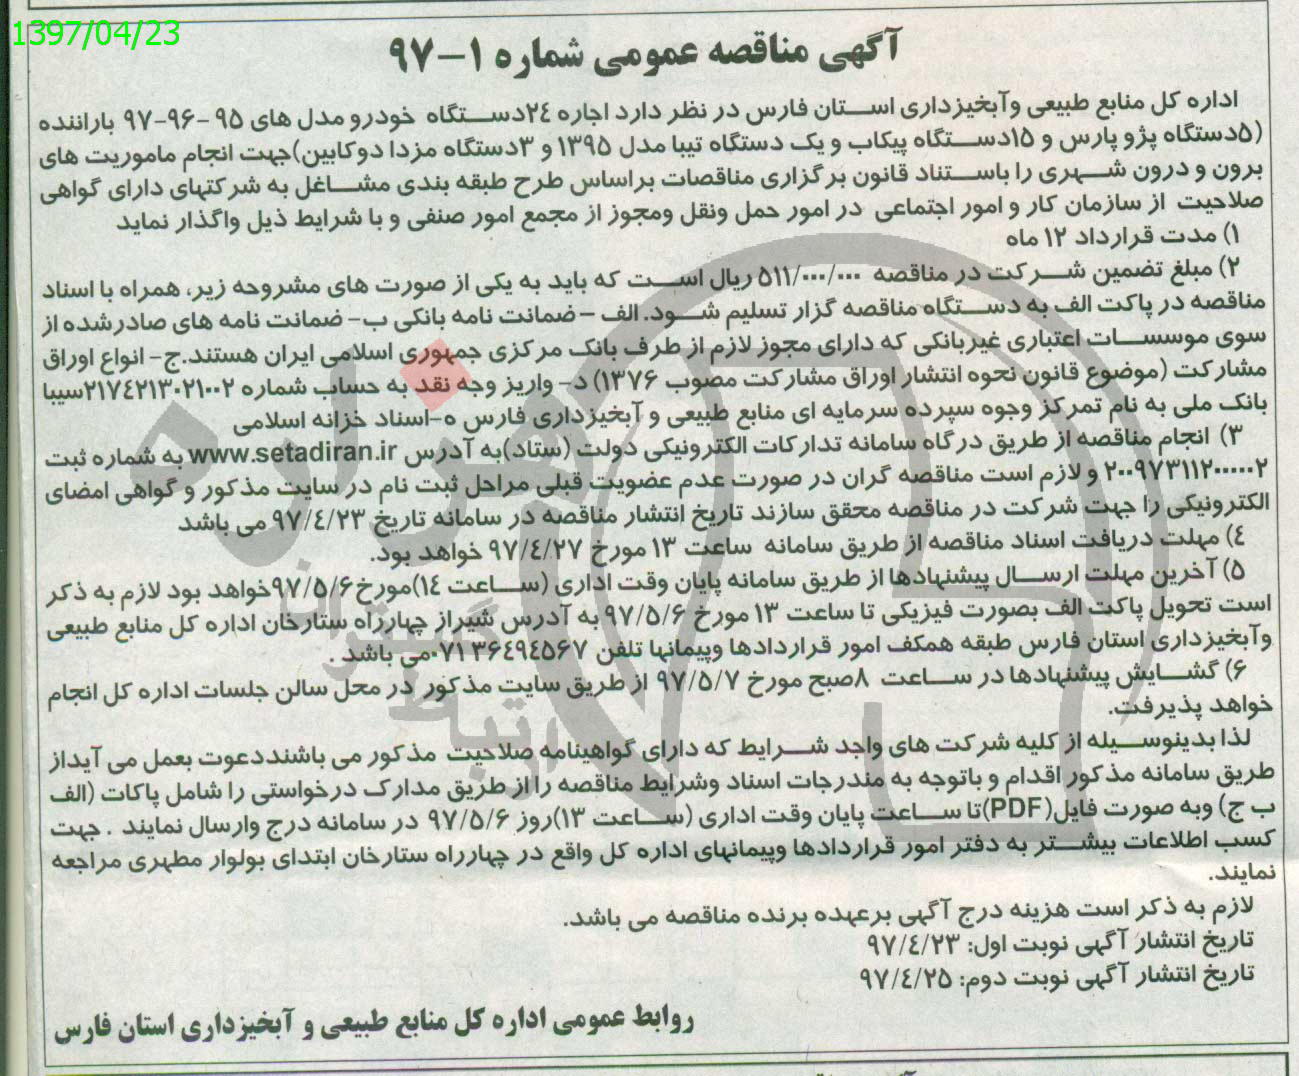 1397/04/23
آگهی مناقصه عمومی شماره ۱-۹۷
اداره کل منابع طبیعی وآبخیزداری استان فارس در نظر دارد اجاره ۲۴دستگاه خودرو مدل های ۹۵-۹۶-۹۷ باراننده
(۵دستگاه پژو پارس و ۱۵دستگاه پیکاب و یک دستگاه تیبا مدل ۱۳۹۵ و ۳دستگاه مزدا دوکابین)جهت انجام ماموریت های
برون و درون شهری را باستناد قانون برگزاری مناقصات براساس طرح طبقه بندی مشاغل به شرکتهای دارای گواهی
صلاحیت از سازمان کار و امور اجتماعی در امور حمل ونقل ومجوز از مجمع امور صنفی و با شرایط ذیل واگذار نماید
۱) مدت قرارداد ۱۲ ماه
۲) مبلغ تضمین شرکت در مناقصه ۵۱۱/۰۰۰/۰۰۰ ریال است که باید به یکی از صورت های مشروحه زیر، همراه با اسناد
مناقصه در پاکت الف به دستگاه مناقصه گزار تسلیم شود. الف – ضمانت نامه بانکی ب- ضمانت نامه های صادرشده از
سوی موسسات اعتباری غیربانکی که دارای مجوز لازم از طرف بانک مرکزی جمهوری اسلامی ایران هستند.ج- انواع اوراق
مشارکت (موضوع قانون نحوه انتشار اوراق مشارکت مصوب ۱۳۷۶) د- واریز وجه نقد به حساب شماره ۲۱۷۴۲۱۳۰۲۱۰۰۲سیبا
بانک ملی به نام تمرکز وجوه سپرده سرمایه ای منابع طبیعی و آبخیزداری فارس ه-اسناد خزانه اسلامی
۳) انجام مناقصه از طریق درگاه سامانه تدارکات الکترونیکی دولت (ستاد)به آدرس www.setadiran.ir به شماره ثبت
۲۰۰۹۷۳۱۱۲۰۰۰۰۰۲ و لازم است مناقصه گران در صورت عدم عضویت قبلی مراحل ثبت نام در سایت مذکور و گواهی امضای
الکترونیکی را جهت شرکت در مناقصه محقق سازند تاریخ انتشار مناقصه در سامانه تاریخ ۹۷/۴/۲۳ می باشد
۴) مهلت دریافت اسناد مناقصه از طریق سامانه ساعت ۱۳ مورخ ۹۷/۴/۲۷ خواهد بود.
۵) آخرین مهلت ارسال پیشنهادها از طریق سامانه پایان وقت اداری (ساعت ۱۴)مورخ ۹۷/۵/۶خواهد بود لازم به ذکر
است تحویل پاکت الف بصورت فیزیکی تا ساعت ۱۳ مورخ ۹۷/۵/۶ به آدرس شیراز چهارراه ستارخان اداره کل منابع طبیعی
وآبخیزداری استان فارس طبقه همکف امور قراردادها وپیمانها تلفن ۰۷۱۳۶۴۹۴۵۶۷می باشد .
۶) گشایش پیشنهادها در ساعت ۸صبح مورخ ۹۷/۵/۷ از طریق سایت مذکور در محل سالن جلسات اداره کل انجام
خواهد پذیرفت.
لذا بدینوسیله از کلیه شرکت های واجد شرایط که دارای گواهینامه صلاحیت مذکور می باشنددعوت بعمل می آیداز
طریق سامانه مذکور اقدام و باتوجه به مندرجات اسناد وشرایط مناقصه را از طریق مدارک درخواستی را شامل پاکات (الف
ب ج) وبه صورت فایل(PDF)تا ساعت پایان وقت اداری (ساعت ۱۳)روز ۹۷/۵/۶ در سامانه درج وارسال نمایند . جهت
کسب اطلاعات بیشتر به دفتر امور قراردادها وپیمانهای اداره کل واقع در چهارراه ستارخان ابتدای بولوار مطهری مراجعه
نمایند.
لازم به ذکر است هزینه درج آگهی برعهده برنده مناقصه می باشد.
تاریخ انتشار آگهی نوبت اول: ۹۷/۴/۲۳
تاریخ انتشار آگهی نوبت دوم: ۹۷/۴/۲۵
روابط عمومی اداره کل منابع طبیعی و آبخیزداری استان فارس